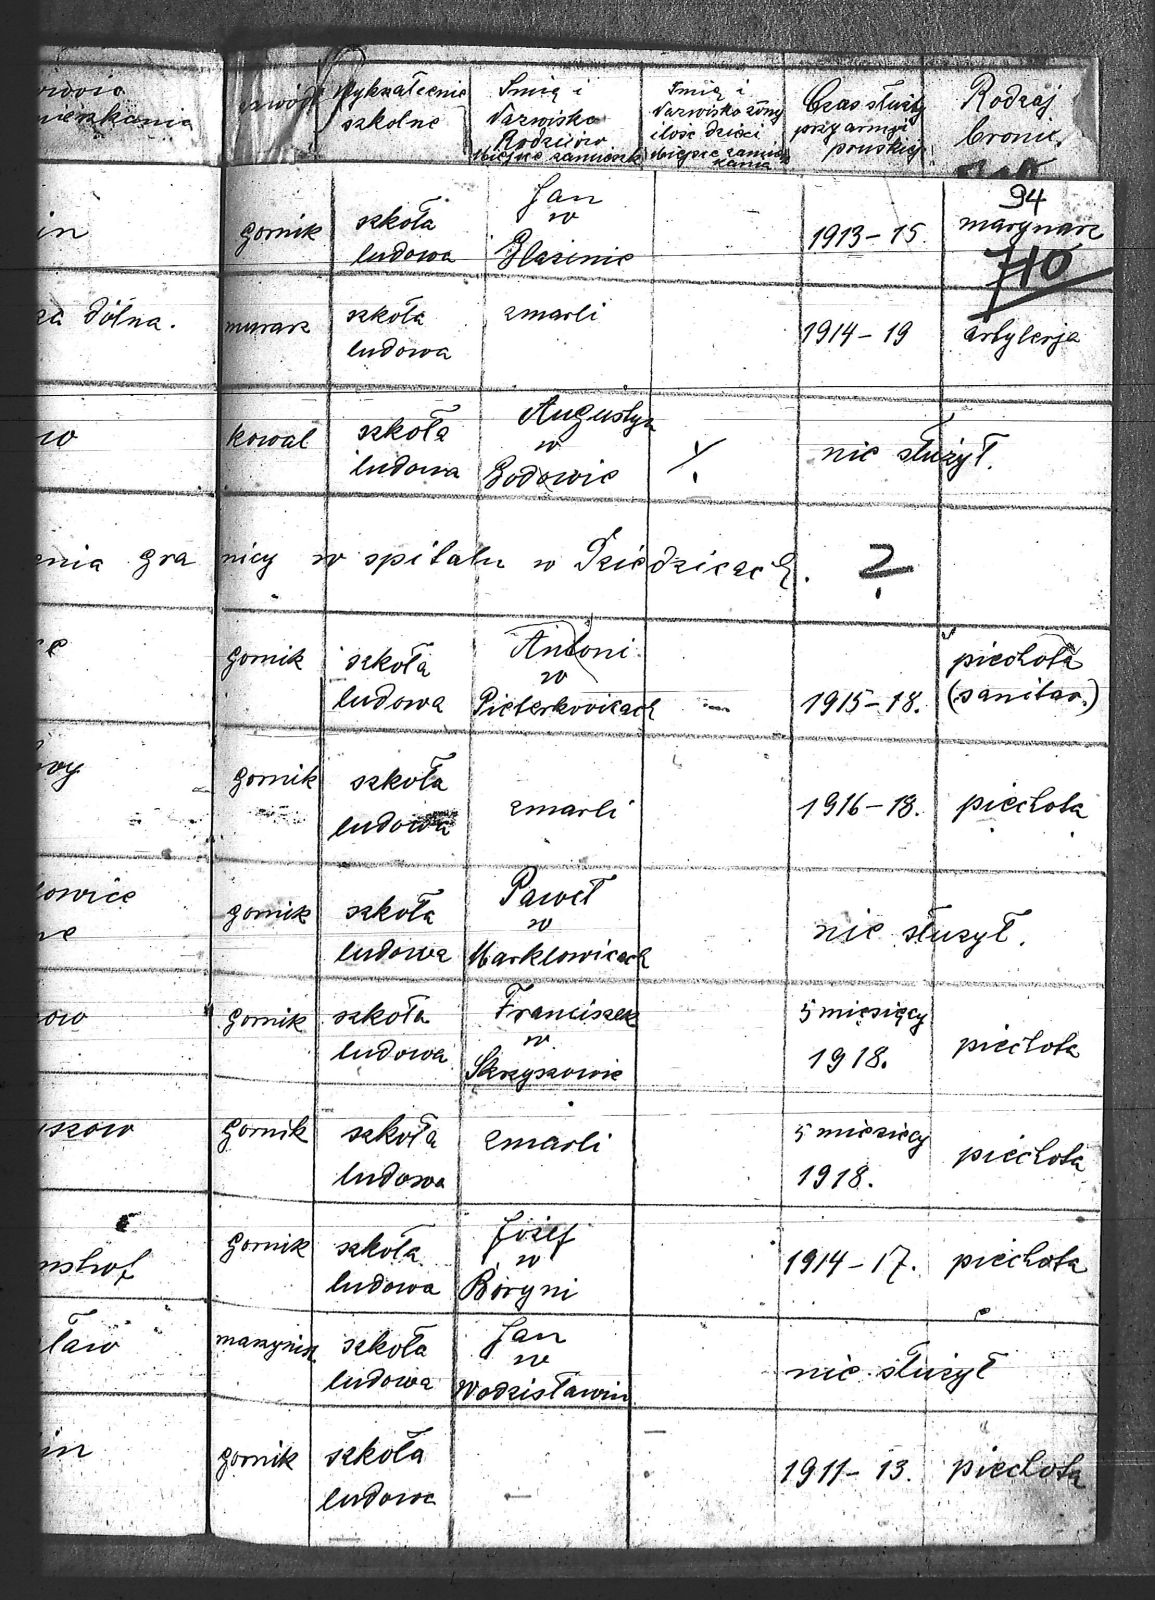 zawód
Wykształcenie
szkolne
Imię i
Nazwisko
Rodziców
Miejsce zamieszk
Imię i
Nazwisko żony
ilość dzieci
Miejsce zamiesz
kania
Czas służby
przy armji
pruskiej
Rodzaj
broni.
94
in
gornik
szkoła
ludowa
Jan
w
Glazinie
1913-15.
marynarz
710
dólna.
murarz
szkoła
ludowa
zmarli
1914-19
artylerja
kowal
szkoła
ludowa
Augustyn
w
Godowie
nie służył.
enia gra nicy w spitalu w Dziedzicach. ?
gornik
szkoła
ludowa
Antoni
w
Pieterkovicach
—
1915-18.
piechota
(sanitar.)
gornik
szkoła
ludowa
zmarli
1916-18.
piechota
lowice
gornik
szkoła
ludowa
Paweł
w
Marklowicach
nie służył.
gornik
szkoła
ludowa
Franciszek
w
Skrzyszowie
5 miesięcy
1918.
piechota
szow
gornik
szkoła
ludowa
zmarli
5 miesięcy
1918.
piechota
nshof
gornik
szkoła
ludowa
Józef
w
Boryni
1914-17.
piechota
ław
maszynist
szkoła
ludowa
Jan
w
Wodzisławiu
nie służył
in
gornik
szkoła
ludowa
—
1911-13.
piechota